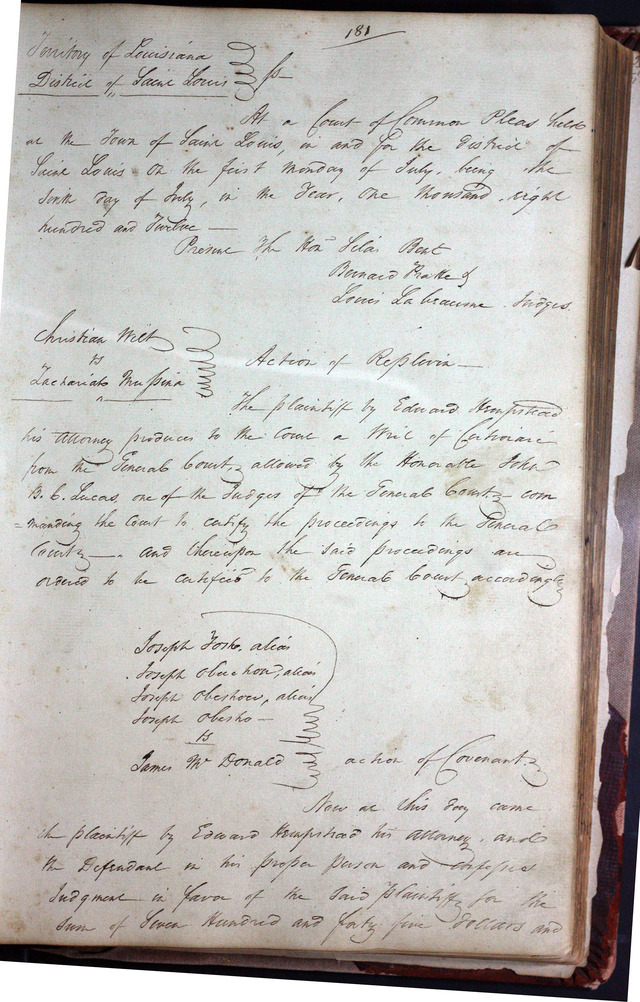 181
Territory of Louisiana
District of Saint Louis } ss
At a Court of Common Pleas held
at the Town of Saint Louis, in and for the district of
Saint Louis on the first monday of July, being the
Sixth day of July, in the Year, One thousand eight
hundred and Twelve —
Present The Honl Silas Bent
Bernard Pratte &
Louis Labeaume Judges
Christian Wilt
vs
Zachariah Mussina
Action of Replevin —
The plaintiff by Edward Hempstead
his Attorney produces to the Court a Writ of Certiorari
from the General Court, allowed by the Honorable John
B. C. Lucas, one of the Judges of the General Court — com
=manding the Court to certify the proceedings to the General
Court — and thereupon the said proceedings are
ordered to be certified to the General Court accordingly
Joseph alias
Joseph obuchon, alias
Joseph obeshow, alias
Joseph obesho —
vs
James Mc Donald
action of Covenant
Now at this day came
the plaintiff by Edward Hempstead his attorney, and
the Defendant in his proper person and confesses
Judgment in favor of the said plaintiff for the
Sum of Seven Hundred and forty five dollars and